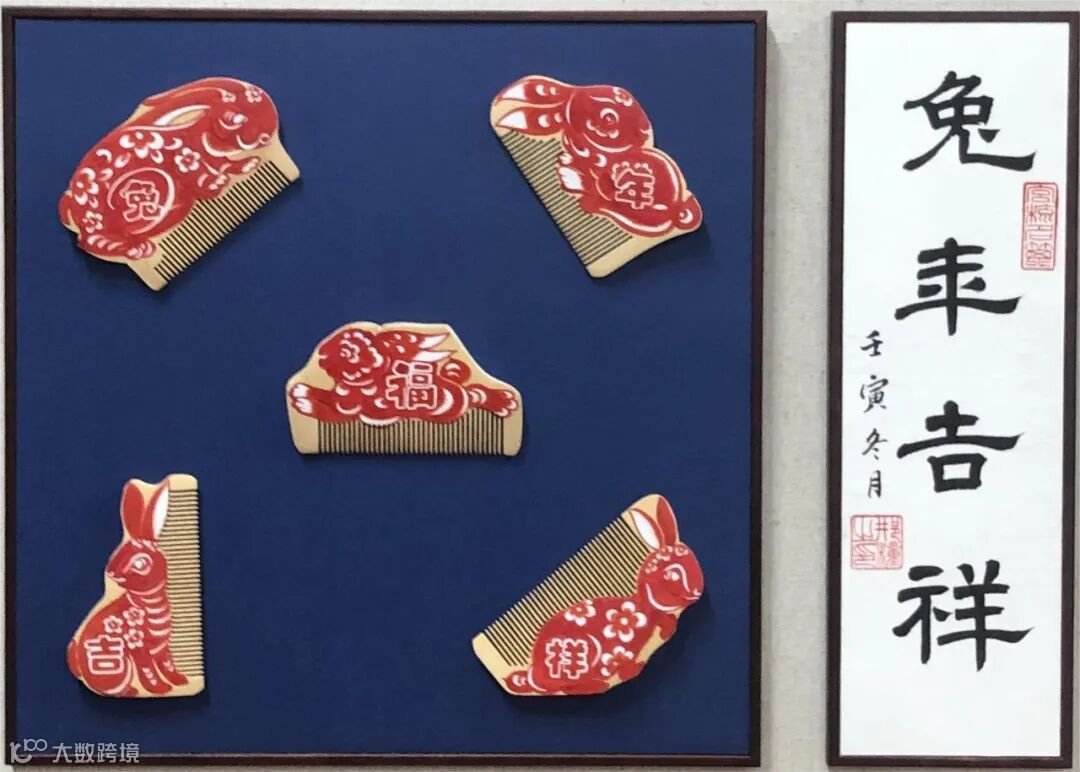 兔
年
福
吉
祥
兔年吉祥
壬寅冬月
大数跨境